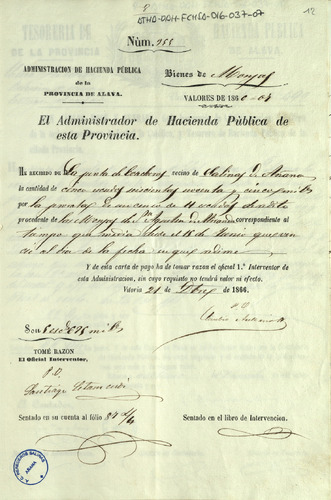 ATHA-DAH-FCHSA-016-037-07
12
Núm. 255
ADMINISTRACION DE HACIENDA PÚBLICA
de la
PROVINCIA DE ALAVA.
Bienes de Monjas
VALORES DE 1860-67
El Administrador de Hacienda Pública de
esta Provincia.
HE RECIBIDO DE La junta de vecino de Salinas de Añana
la cantidad de cinco escudos seiscientos noventa y cinco mils
por la prorata de un censo de 11 escudos de rédito
procedente de las Monjas de Sn Agustin de correspondiente al
tiempo que media desde el 18 de Junio que ven
ció al de la fecha en que redime
Y de esta carta de pago ha de tomar razon el oficial 1.º Interventor de
esta Administracion, sin cuyo requisito no tendrá valor ni efecto.
Vitoria 21 de Dbre de 1866.
P. O.
Son 5 esc 695 mils
TOMÉ RAZON
El Oficial Interventor,
P. O.
Santiago
Sentado en su cuenta al fólio 84
Sentado en el libro de Intervencion.
AÑANA